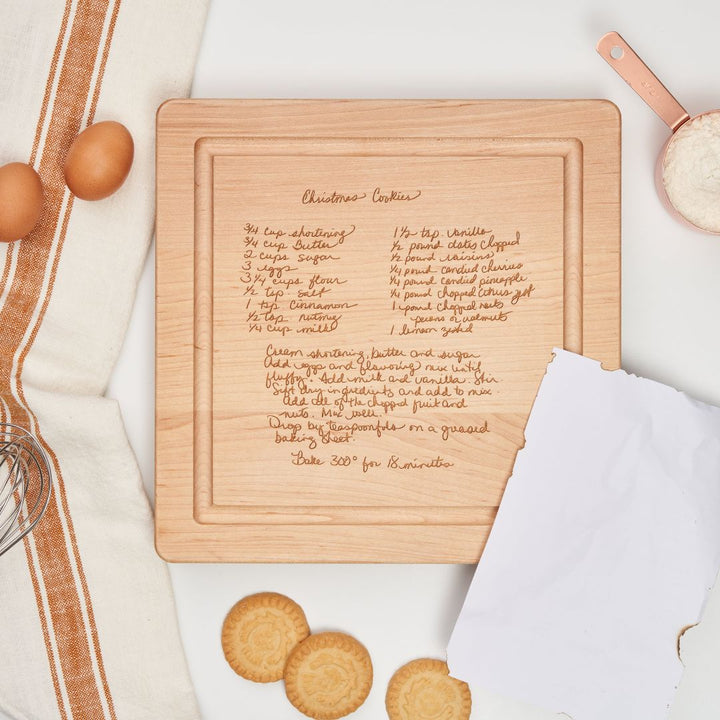 Christmas Cookies
3/4 cup shortening
3/4 cup Butter
2 cups sugar
3 eggs
3 1/4 cups flour
1/2 tsp. salt
1 tsp cinnamon
1/2 tsp. nutmeg
1/4 cup milk
1 1/2 tsp. vanilla
1/2 pound dates chopped
1/2 pound raisins
1/4 pound candied cherries
1/4 pound candied pineapple
1/4 pound chopped citrus zest
1 pound chopped nuts
pecans or walnuts
1 lemon zested
Cream shortening, butter and sugar
Add eggs and flavoring mix until
fluffy. Add milk and vanilla. Stir.
Sift dry ingredients and add to mix.
Add all of the chopped fruit and
nuts. Mix well.
Drop by teaspoonfuls on a greased
baking sheet.
Bake 300° for 18 minutes